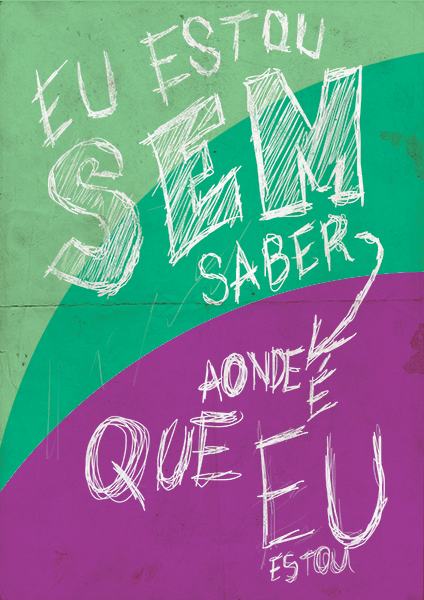 EU ESTOU
SEM
SABER
AONDE É
QUE EU
ESTOU